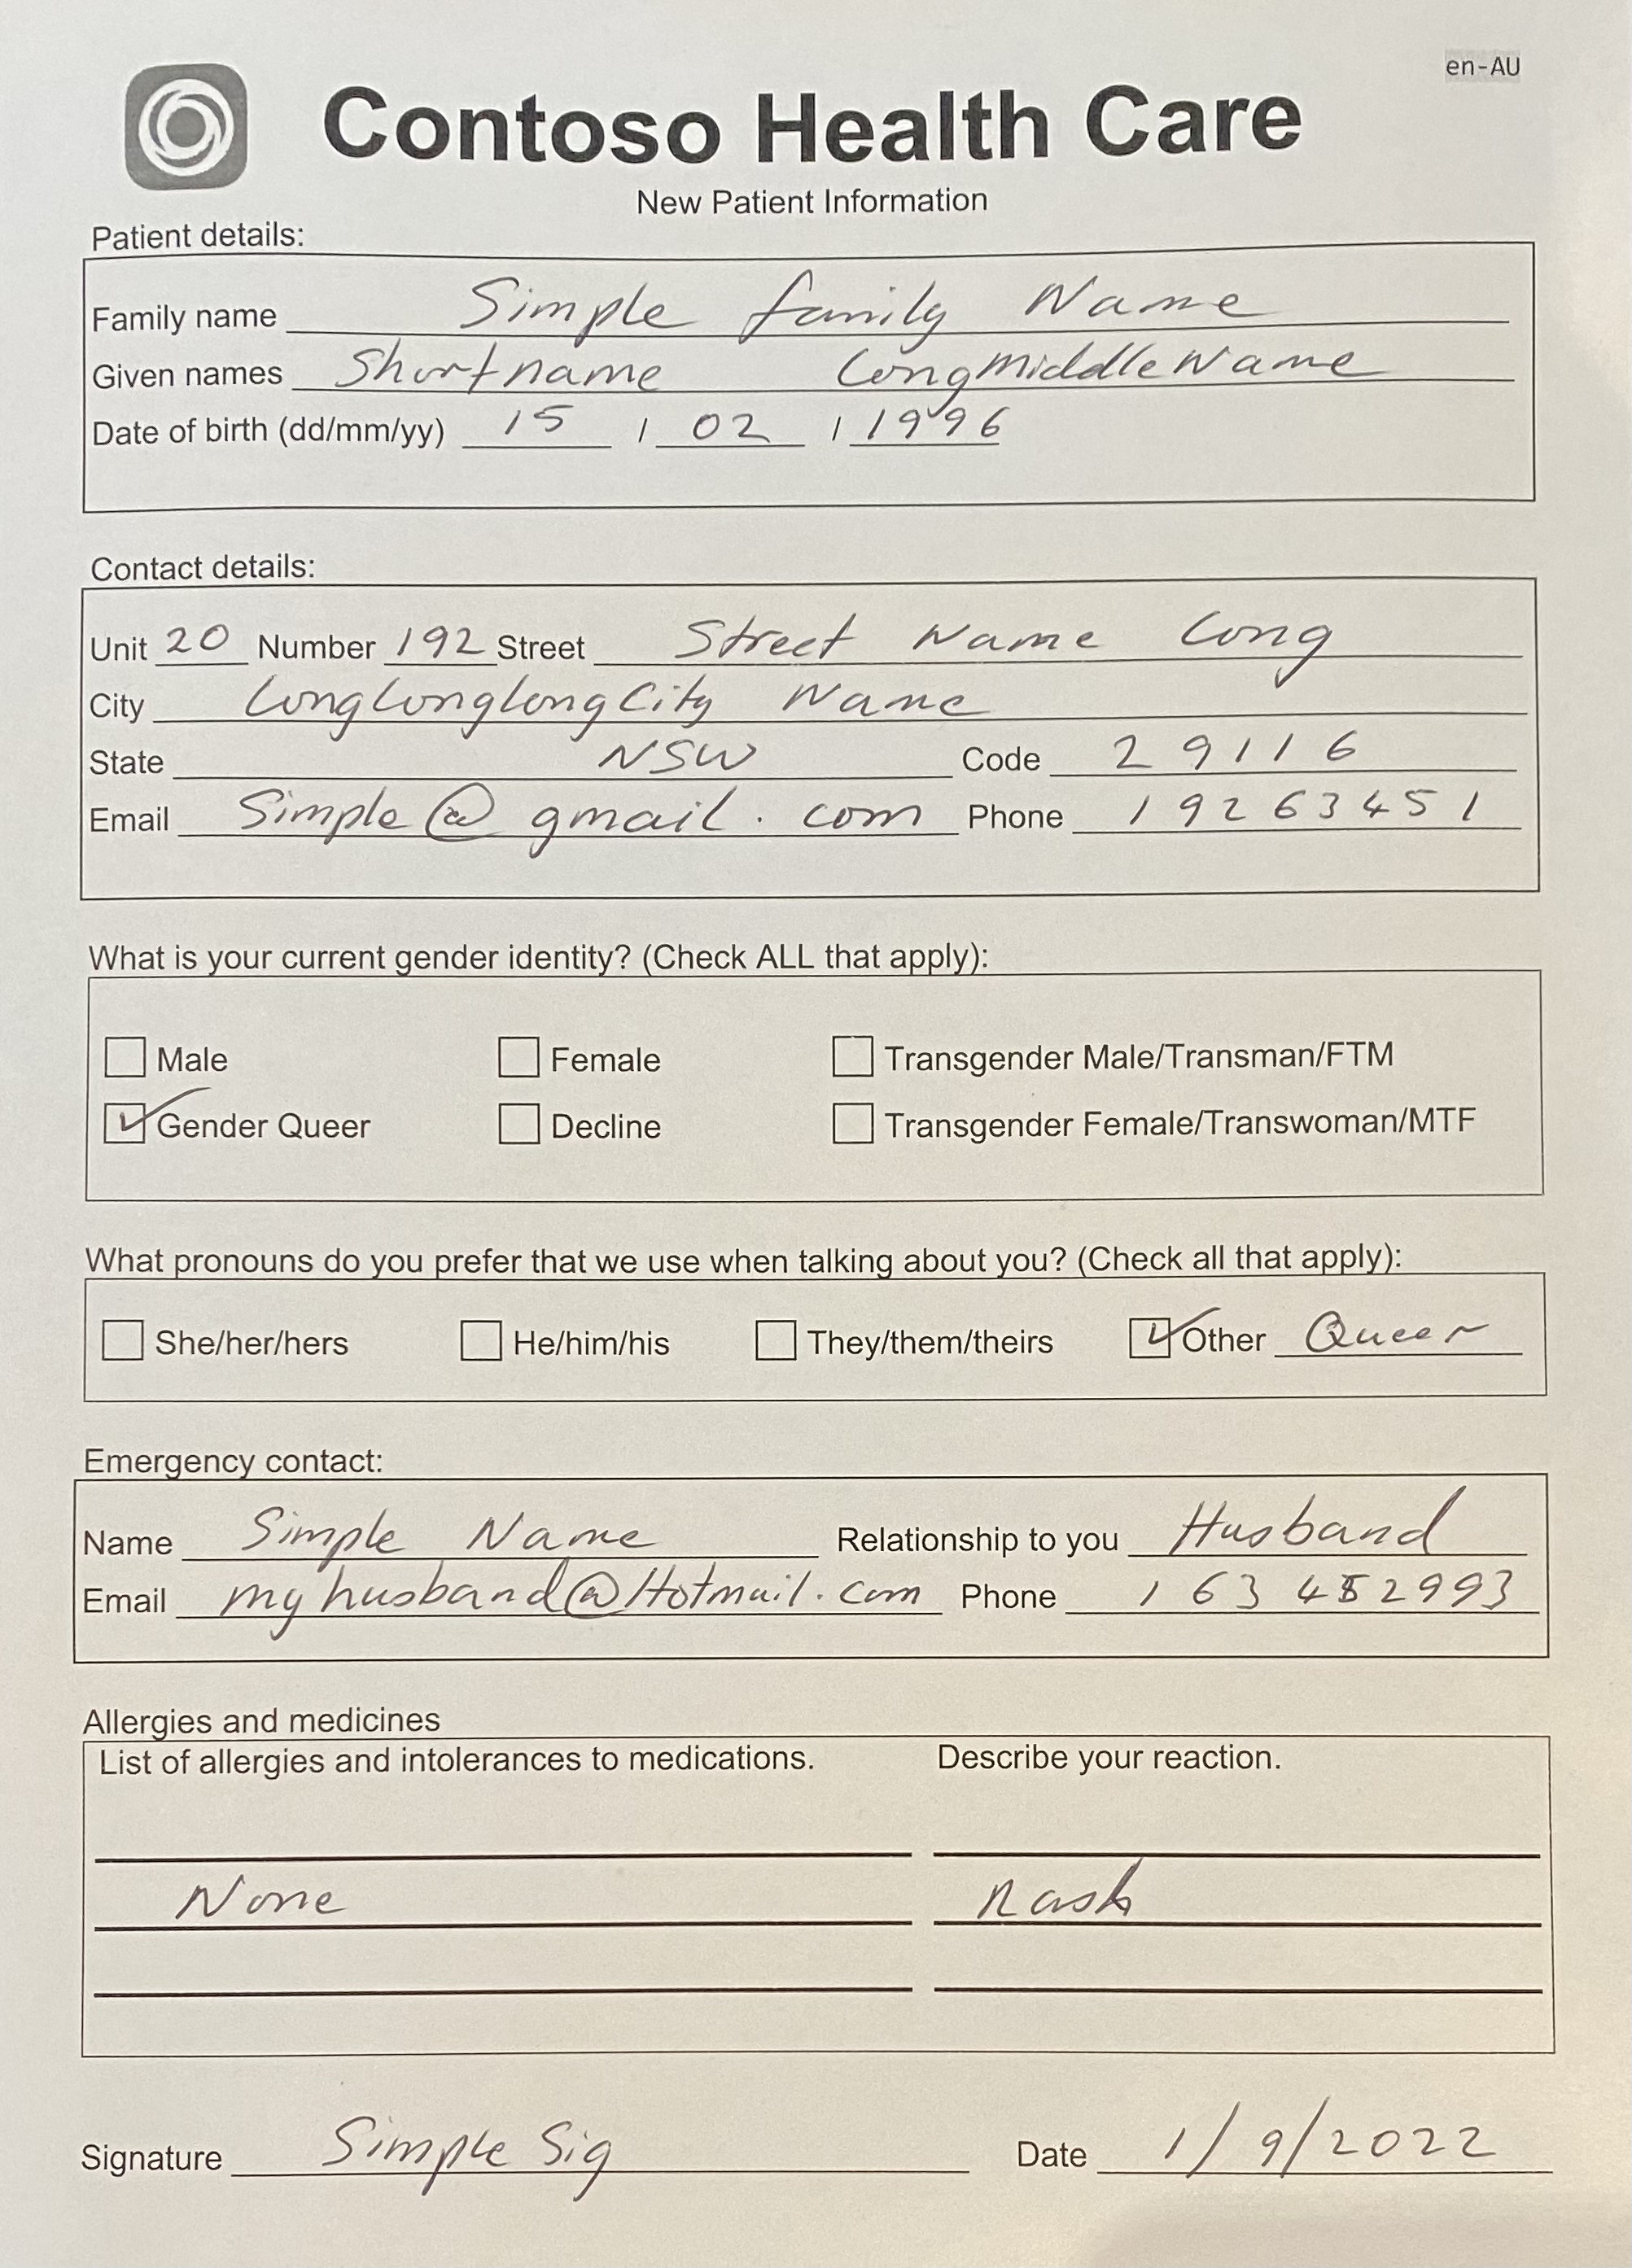 en-AU
Contoso Health Care
New Patient Information
Patient details:
Family name Simple family Name
Given names Shortname LongMiddleName
Date of birth (dd/mm/yy) 15 / 02 / 1996
Contact details:
Unit 20 Number 192 Street Street Name Long
City LongLongLongCity Name
State NSW Code 29116
Email Simple@gmail.com Phone 19263451
What is your current gender identity? (Check ALL that apply):
Male Female Transgender Male/Transman/FTM
Gender Queer Decline Transgender Female/Transwoman/MTF
What pronouns do you prefer that we use when talking about you? (Check all that apply):
She/her/hers He/him/his They/them/theirs Other Queer
Emergency contact:
Name Simple Name Relationship to you Husband
Email myhusband@Hotmail.com Phone
Allergies and medicines
List of allergies and intolerances to medications. Describe your reaction.
None Rash
Signature Simple Sig Date 1/9/2022